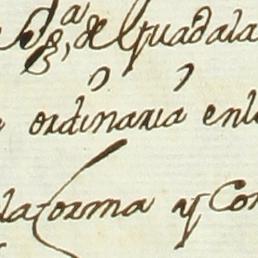 de Guadala
ordinaria enl
la forma y Con